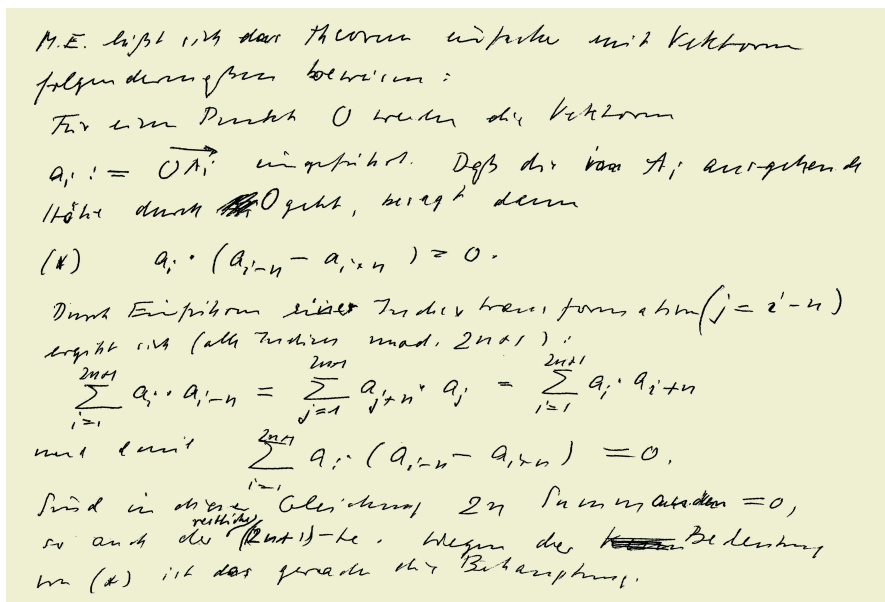 M.E. läßt sich das Theorem einfacher mit Vektoren
folgendermaßen beweisen:
Für einen Punkt O werden die Vektoren
a_i := \overrightarrow{OA_i} eingeführt. Daß die von A_i ausgehende
Höhe durch O geht, besagt dann
(*) a_i · (a_{i-n} - a_{i+n}) = 0.
Durch Einführen einer Indextransformation (j = i - n)
ergibt sich (alle Indizes mod. 2n+1):
\sum_{i=1}^{2n+1} a_i · a_{i-n} = \sum_{j=1}^{2n+1} a_{j+n} · a_j = \sum_{i=1}^{2n+1} a_i · a_{i+n}
und damit \sum_{i=1}^{2n+1} a_i · (a_{i-n} - a_{i+n}) = 0.
Sind in dieser Gleichung 2n Summanden = 0,
so auch der restliche (2n+1)-te. Wegen der Bedeutung
von (*) ist das gerade die Behauptung.